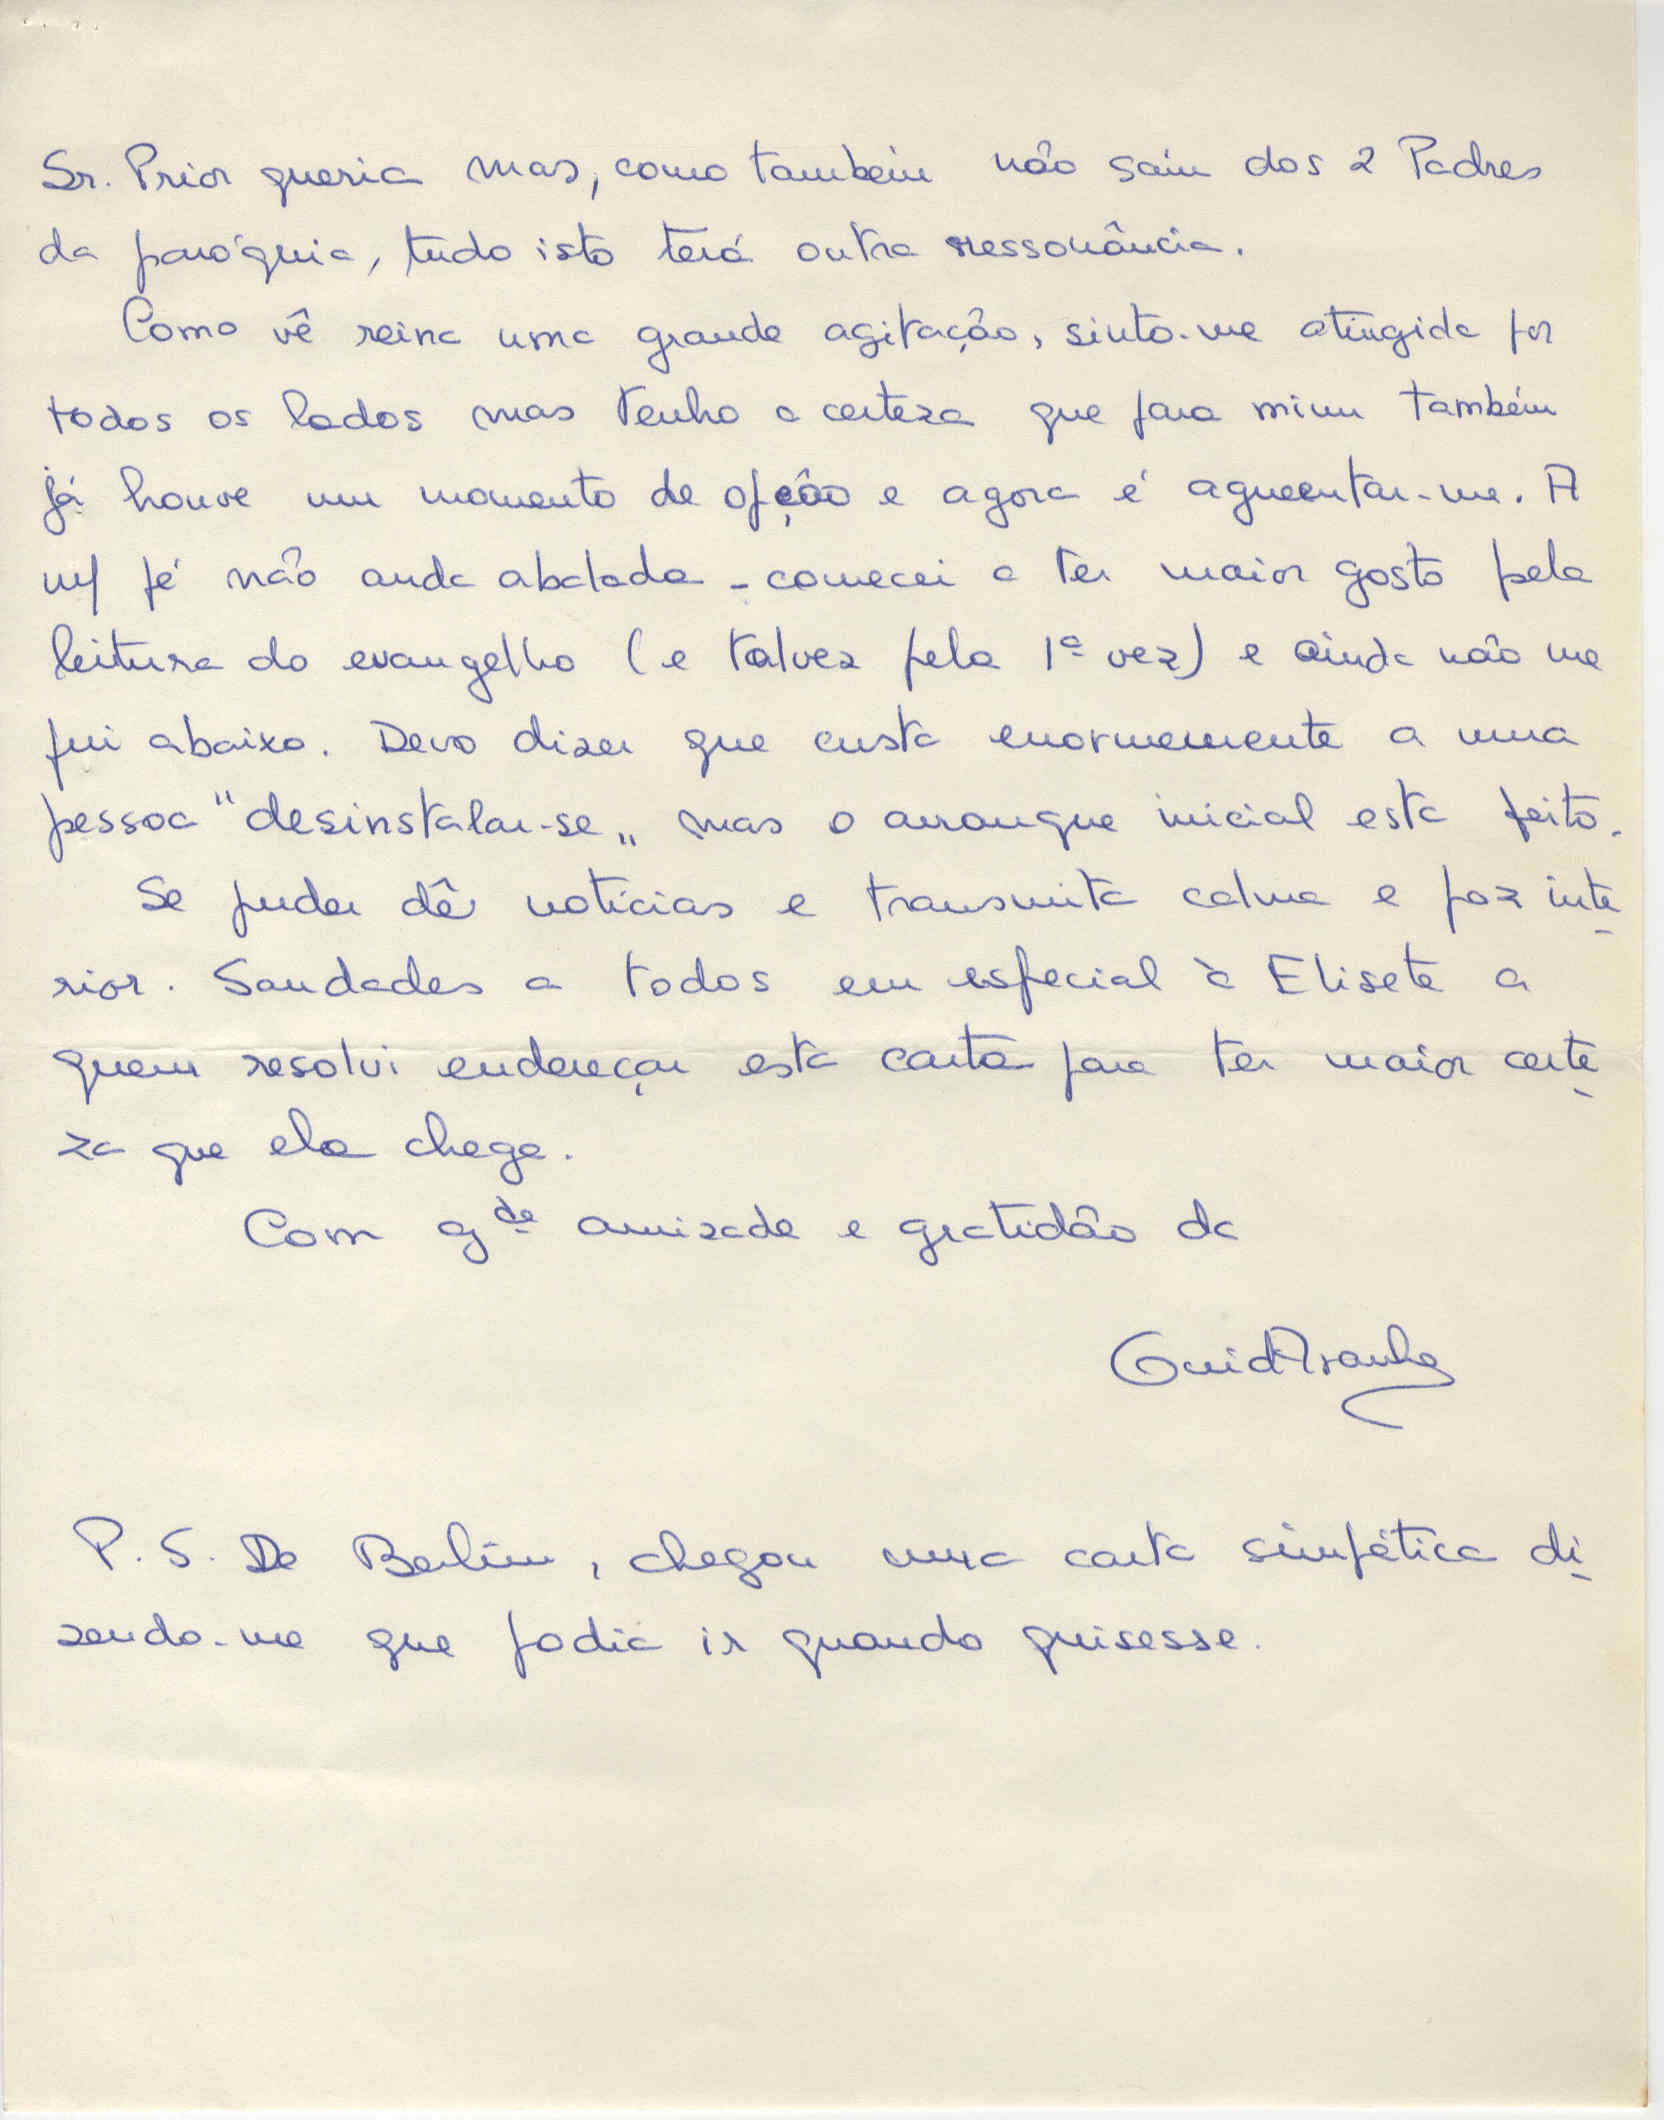 Sr. Prior queria mas, como também não saiu dos 2 Padres
da paróquia, tudo isto terá outra ressonância.
Como vê reina uma grande agitação, sinto-me atingida por
todos os lados mas tenho a certeza que para mim também
já houve um momento de opção e agora é aguentar-me. A
m/ fé não anda abalada - comecei a ter maior gosto pela
leitura do evangelho (e talvez pela 1ª vez) e ainda não me
fui abaixo. Devo dizer que custa enormemente a uma
pessoa "desinstalar-se" mas o arranque inicial está feito.
Se puder dê notícias e transmita calma e paz inte
rior. Saudades a todos em especial à Elisete a
quem resolvi endereçar esta carta para ter maior certe
za que ela chega.
Com gde amizade e gratidão da
P.S. De Berlim, chegou uma carta simpática di
zendo-me que podia ir quando quisesse.